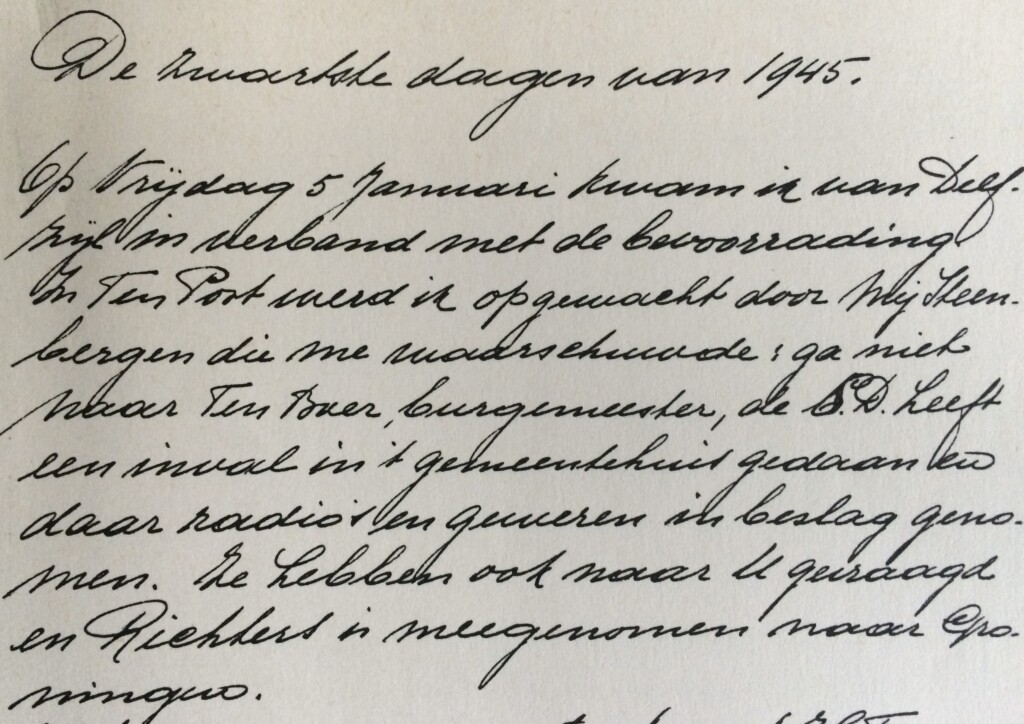 De zwartste dagen van 1945.
Op Vrijdag 5 Januari kwam ik van Delf-
zijl in verband met de bevoorrading
In Ten Post werd ik opgewacht door Mej Steen-
bergen die me waarschuwde: ga niet
naar Ten Boer, burgemeester, de S.D. heeft
een inval in 't gemeentehuis gedaan en
daar radio's en geweren in beslag geno-
men. Ze hebben ook naar U gevraagd
en Richters is meegenomen naar Gro-
ningen.